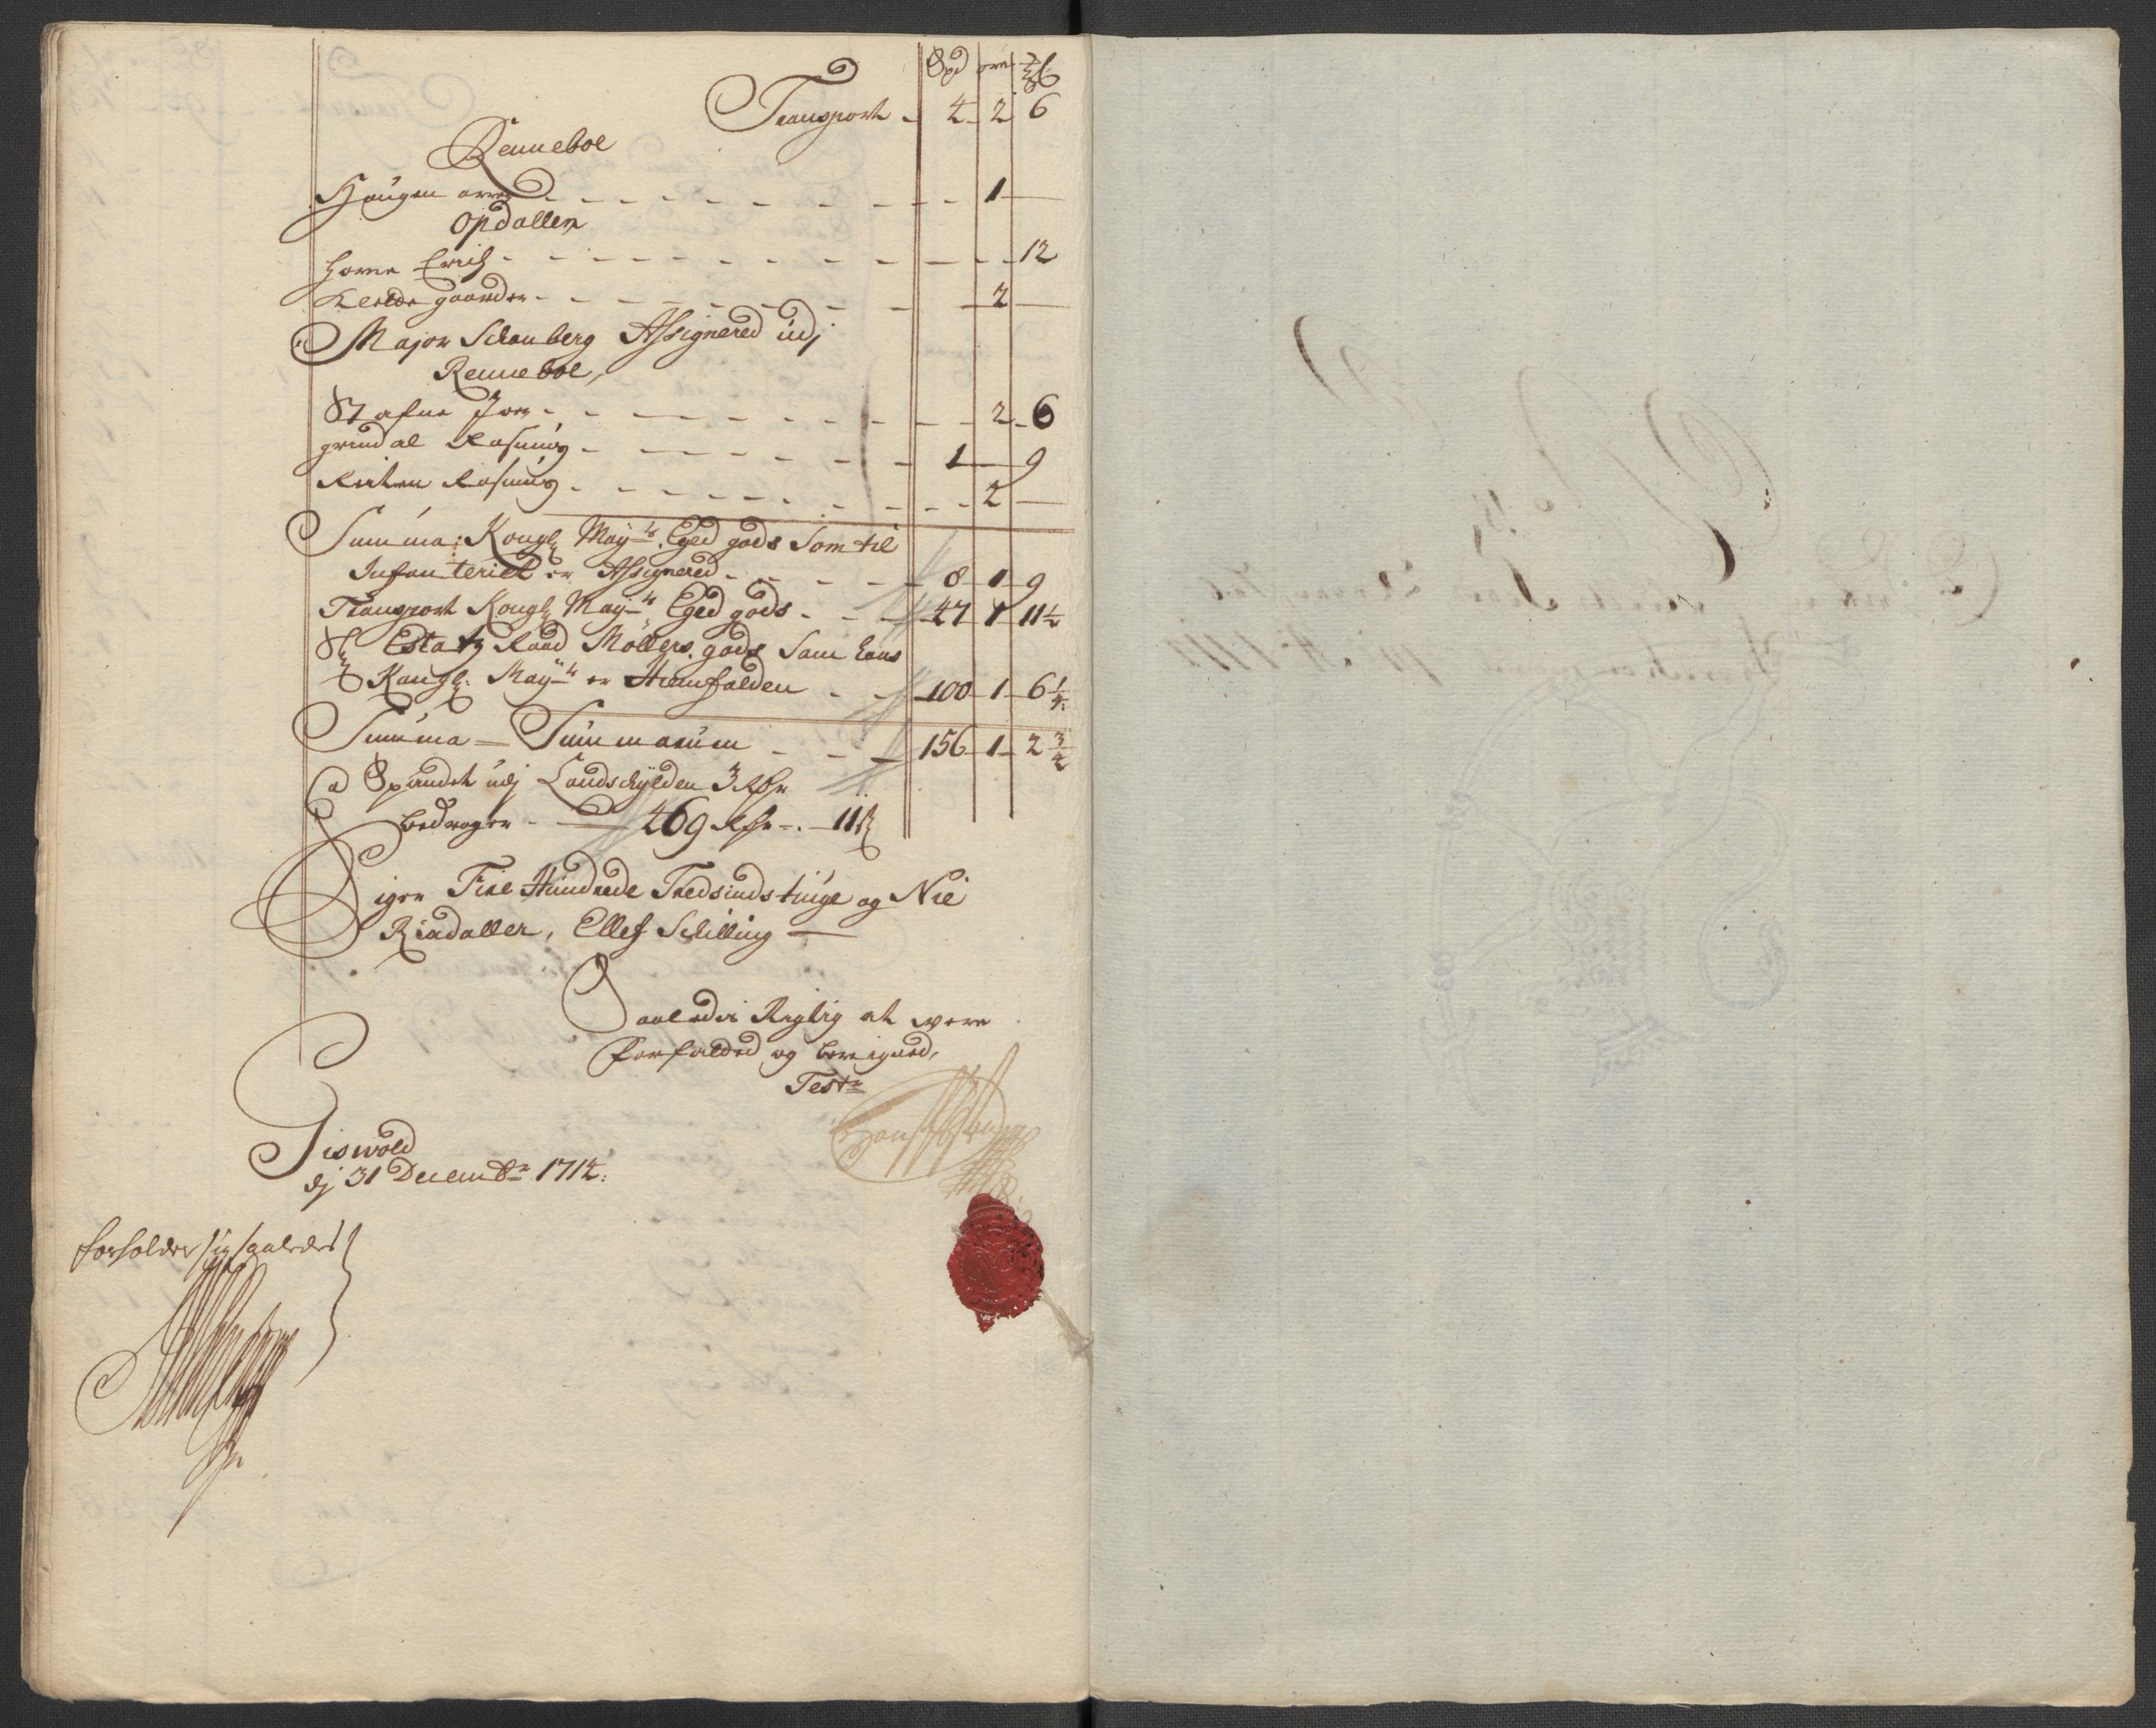 Spd øre
Transport - 4 - 2 6
Renneboe
Haugen - 1 -
Opdallen
Horne Erich - 12
gaarder - 2 -
Major Schouberg Assignered udj
Renneboe,
Stafne Joen - 2 - 6
grindal Rasmus - 1 - 9
Rasmus - 2 -
Summa: Kongl: May:ts Eged gods Som til
Infanteriet er Assignered - 8 - 1 9
Transport Kongl: May:ts Eged gods - 47 1 11½
Hr Estatz Raad Møllers gods Som hans
Kongl: May:ts er Hiemfalden - 100 - 1 - 6¼
Summa - Summarum - 156 - 1 - 2¾
a Spandet udj Landschylden 3 Rdr
bedrager - 469 Rdr - 11 ß
Siger Fire Hundrede Tredsindstiuge og Nie
Rixdaller, Ellef Schilling
Saaledis Rigtig at were
forfalded og beregned,
Teste
Giswold
dj 31 Decembr 1714:
forholder sig saaledes